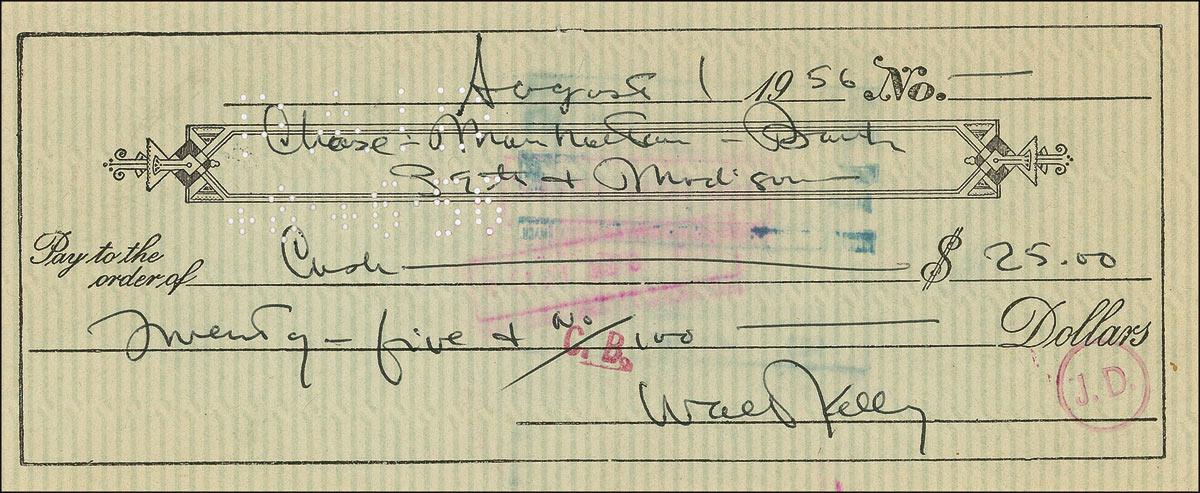 August 1 1956 No. —
Chase - Manhattan - Bank
39th + Madison
Pay to the
order of Cash — $ 25.00
Twenty - five + no/100 — Dollars
C. B.
J. D.
Walt Kelly